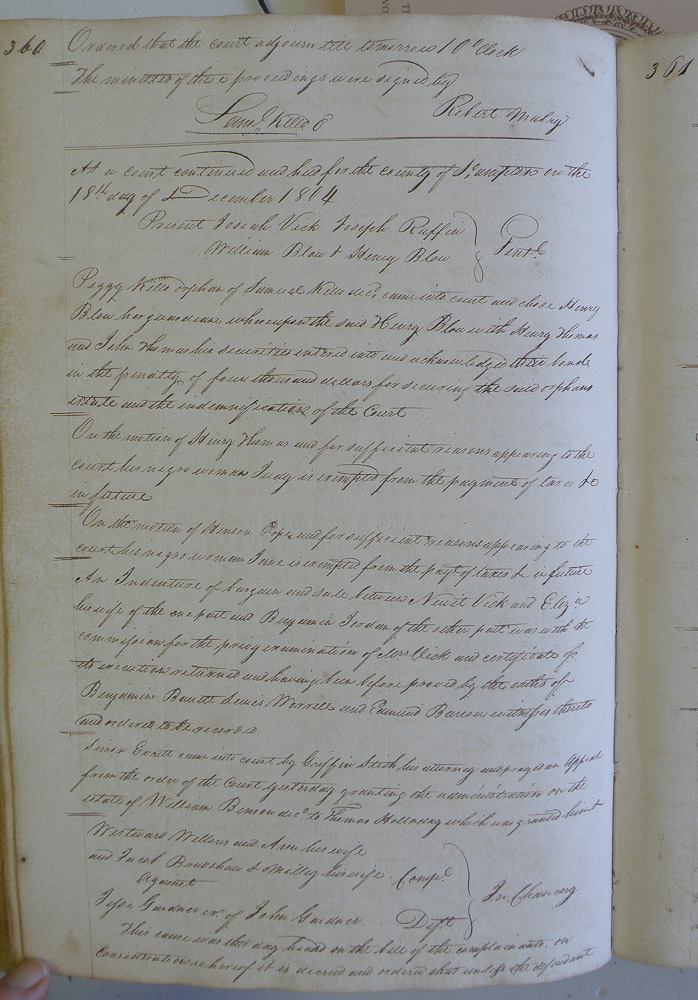 360
Ordered that the court adjourn till tomorrow 10 oClock
The minutes of these proceedings were signed by
Saml. Kello
Robert Mabry
At a court continued and held for the county of Sampton on the
18th day of December 1814
Present Josiah Vick Joseph Ruffin
William Blow & Henry Blow } Gentl.
Peggy Kello orphan of Samuel Kello decd. came into court and chose Henry
Blow her guardian, whereupon the said Henry Blow with Henry Thomas
and John Thomas his securities entered into and acknowledged their bond
in the penalty of four thousand dollars for securing the said orphans
estate and the indemnification of the Court
On the motion of Henry Thomas and for sufficient reasons appearing to the
court his negro woman Judy is exempted from the payment of taxes &c
in future
On the motion of Henson and for sufficient reasons appearing to the
court his negro woman Jane is exempted from the payt. of taxes &c in future
An Indenture of bargain and sale between Newit Vick and Eliza.
his wife of the one part and Benjamin Jordan of the other part was with the
commission for the privy examination of Mrs Vick and certificate of
its execution returned and having been before proved by the oaths of
Benjamin Barrett Lewis Worrell and Edmund witnesses thereto
and ordered to be recorded
Simon Everitt came into court by Griffin Stith his attorney and prays an Appeal
from the order of the Court yesterday granting the administration on the
estate of William Binson decd. to Thomas Holladay which was granted him
Westward Willons and Ann his wife
and Jacob Bradshaw & Milley his wife Compl.
Against } In Chancery
Jesse Gardner ex. of John Gardner Deft.
This cause was this day heard on the bill of the complainants, on
Consideration whereof it is decreed and ordered that unless the defendant
361